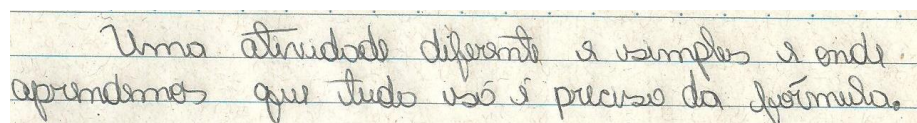 Uma atividade diferente e simples e onde
aprendemos que tudo só é preciso da fórmula.